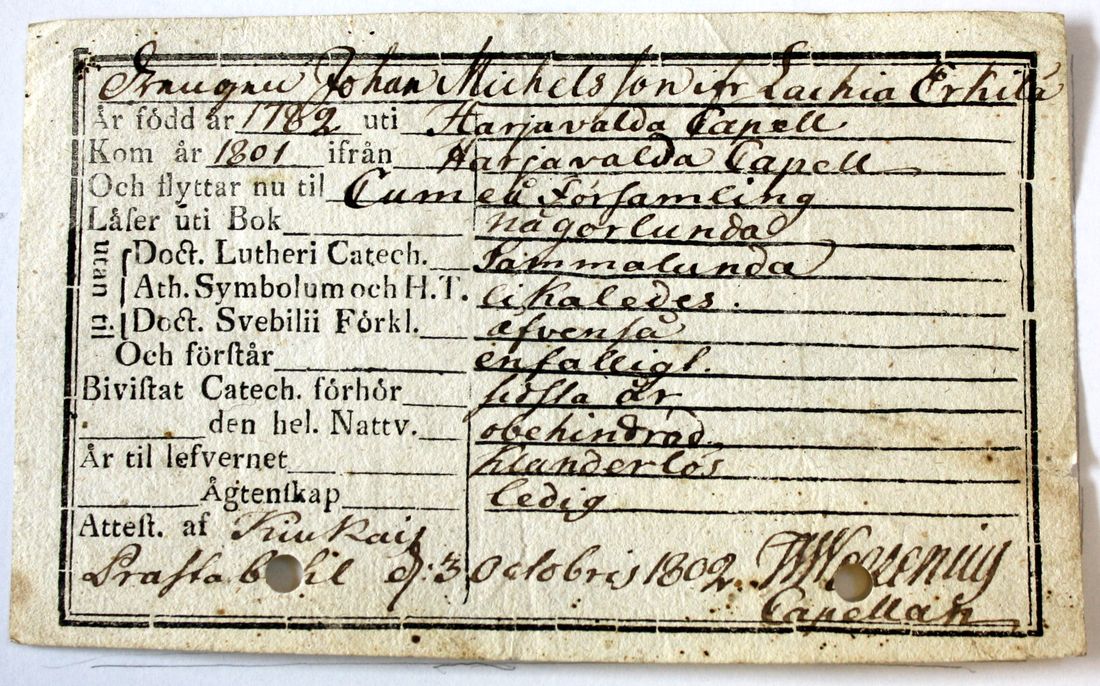 Drengen Johan Michelsson ifr Laihia Erkilä
År född år 1782 uti Harjavalda Capell
Kom år 1801 ifrån Harjavalda Capell
Och flyttar nu til Cumeå Församling
Låſer uti Bok någorlunda
utan
Doct. Lutheri Catech. Sammalunda
Ath. Symbolum och H. T. likaledes.
Doct. Svebilii Förkl. äfvenså
Och förſtår enfalligt.
Biviſtat Catech. förhör sidsta år
den hel. Nattv. obehindrad
År til lefvernet klanderlös
Ägtenſkap ledig
Atteſt. af Kiukais
Prästabohl d: 3 Octobris 1802
Capellan